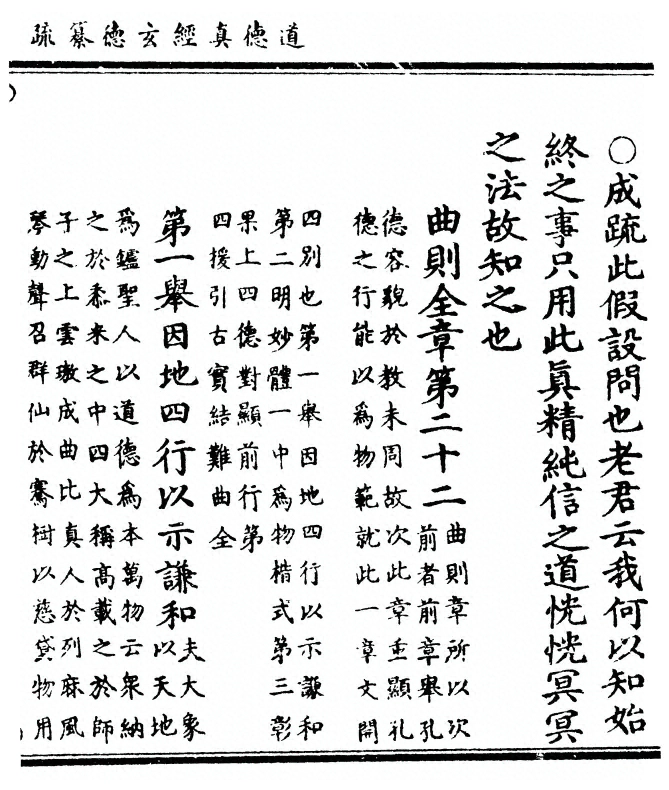 道德真經玄德纂疏
○成疏此假設問也老君云我何以知始
終之事只用此眞精純信之道恍恍冥冥
之法故知之也
曲則全章第二十二
曲則章所以次
前者前章舉孔
德容貌於教未周故次此章重顯礼
德之行能以爲物範就此一章文開
四別也第一舉因地四行以示謙和
第二明妙體一中爲物楷式第三彰
果上四德對顯前行第
四援引古實結難曲全
第一舉因地四行以示謙和
夫大象
以天地
爲鑪聖人以道德爲本萬物云衆納
之於黍米之中四大稱高載之於師
子之上雲璈成曲比真人於列麻風
琴動聲召群仙於騫樹以慈貸物用